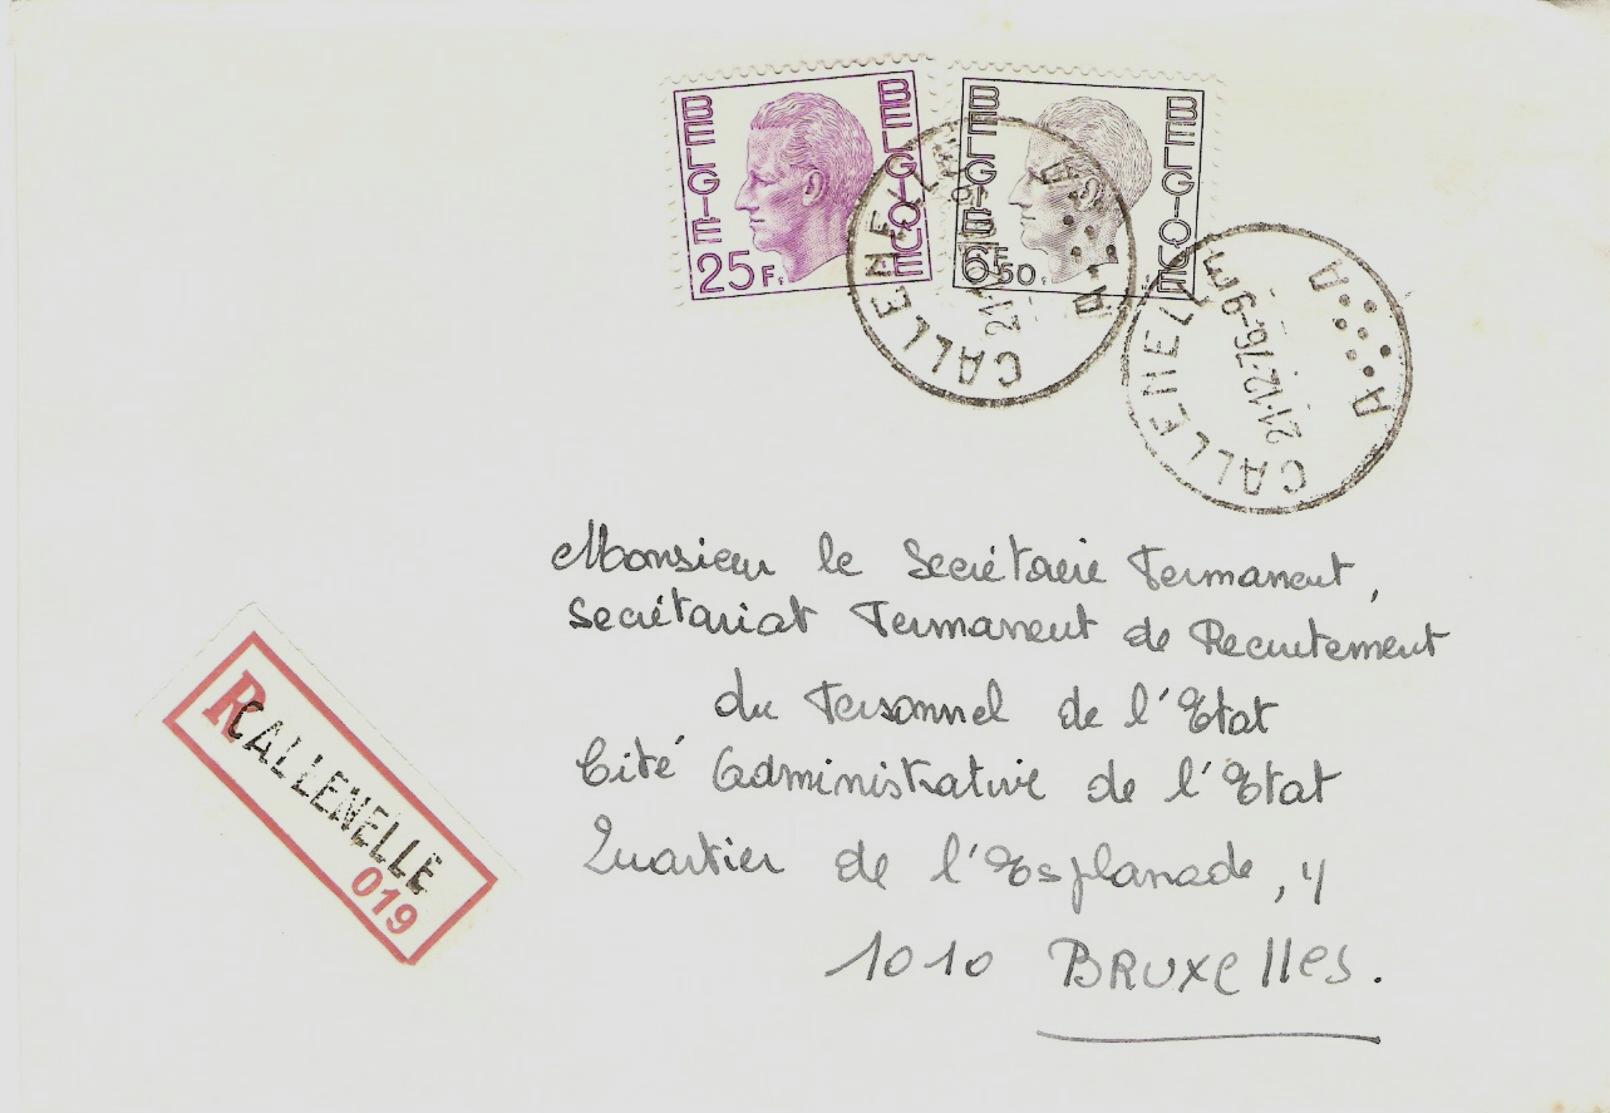 BELGIE BELGIQUE
25F
BELGIE BELGIQUE
6F50
CALLENELLE
21-12
A A
CALLENELLE
21-12-76-9
A A
Monsieur le Secrétaire Permanent,
Secrétariat Permanent de Recrutement
du Personnel de l'Etat
Cité Administrative de l'Etat
Quartier de l'Esplanade, 4
1010 BRUXElles.
R CALLENELLE
019